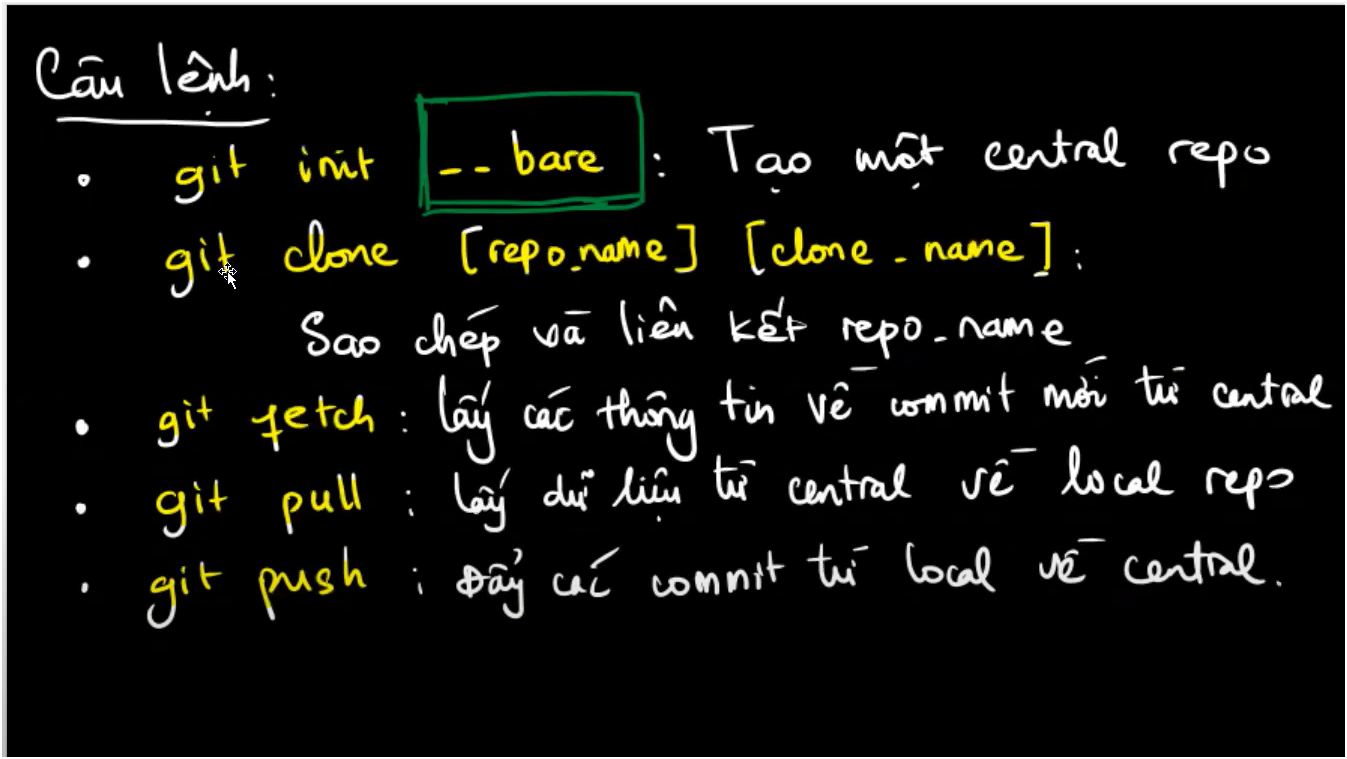 Câu lệnh:
• git init -- bare : Tạo một central repo
• git clone [repo_name] [clone_name] :
Sao chép và liên kết repo_name
• git fetch : lấy các thông tin về commit mới từ central
• git pull : lấy dữ liệu từ central về local repo
• git push : Đẩy các commit từ local về central.